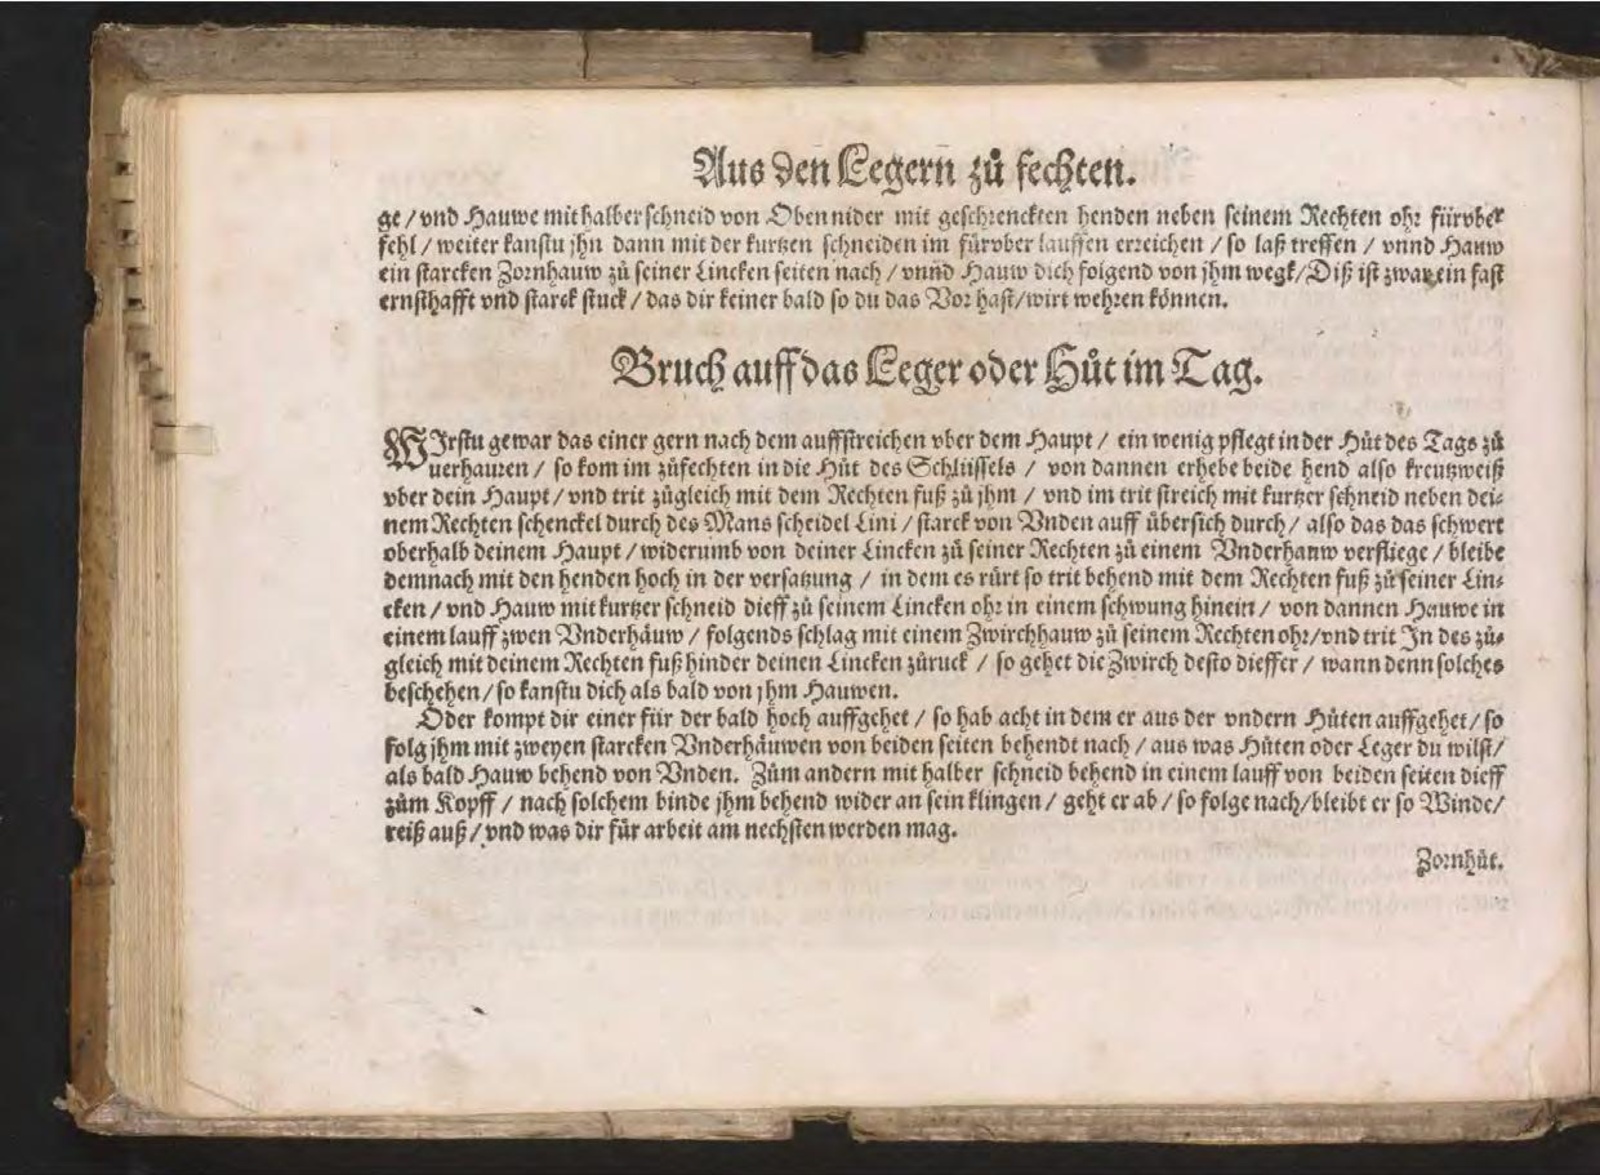 Aus den Legern zů fechten.
ge / vnd Hauwe mit halber schneid von Oben nider mit geschrenckten henden neben seinem Rechten ohr fürvber
fehl / weiter kanstu jhn dann mit der kurtzen schneiden im fürvber lauffen erreichen / so laß treffen / vnnd Hauw
ein starcken Zornhauw zů seiner Lincken seiten nach / vnnd Hauw dich folgend von jhm wegk / Diß ist zwar ein fast
ernsthafft vnd starck stuck / das dir keiner bald so du das Vor hast / wirt wehren können.
Bruch auff das Leger oder Hůt im Tag.
WIrstu gewar das einer gern nach dem auffstreichen vber dem Haupt / ein wenig pflegt in der Hůt des Tags zů
uerharren / so kom im zůfechten in die Hůt des Schlüssels / von dannen erhebe beide hend also kreutzweiß
vber dein Haupt / vnd trit zůgleich mit dem Rechten fuß zů jhm / vnd im trit streich mit kurtzer schneid neben dei-
nem Rechten schenckel durch des Mans scheidel Lini / starck von Vnden auff übersich durch / also das das schwert
oberhalb deinem Haupt / widerumb von deiner Lincken zů seiner Rechten zů einem Vnderhauw verfliege / bleibe
demnach mit den henden hoch in der versatzung / in dem es rürt so trit behend mit dem Rechten fuß zů seiner Lin-
cken / vnd Hauw mit kurtzer schneid dieff zů seinem Lincken ohr in einem schwung hinein / von dannen Hauwe in
einem lauff zwen Vnderhäuw / folgends schlag mit einem Zwirchhauw zů seinem Rechten ohr / vnd trit In des zů-
gleich mit deinem Rechten fuß hinder deinen Lincken zůruck / so gehet die Zwirch desto dieffer / wann denn solches
beschehen / so kanstu dich als bald von jhm Hauwen.
Oder kompt dir einer für der bald hoch auffgehet / so hab acht in dem er aus der vndern Hůten auffgehet / so
folg jhm mit zweyen starcken Vnderhäuwen von beiden seiten behendt nach / aus was Hůten oder Leger du wilst /
als bald Hauw behend von Vnden. Zům andern mit halber schneid behend in einem lauff von beiden seiten dieff
zům Kopff / nach solchem binde jhm behend wider an sein klingen / geht er ab / so folge nach / bleibt er so Winde /
reiß auß / vnd was dir für arbeit am nechsten werden mag.
Zornhůt.